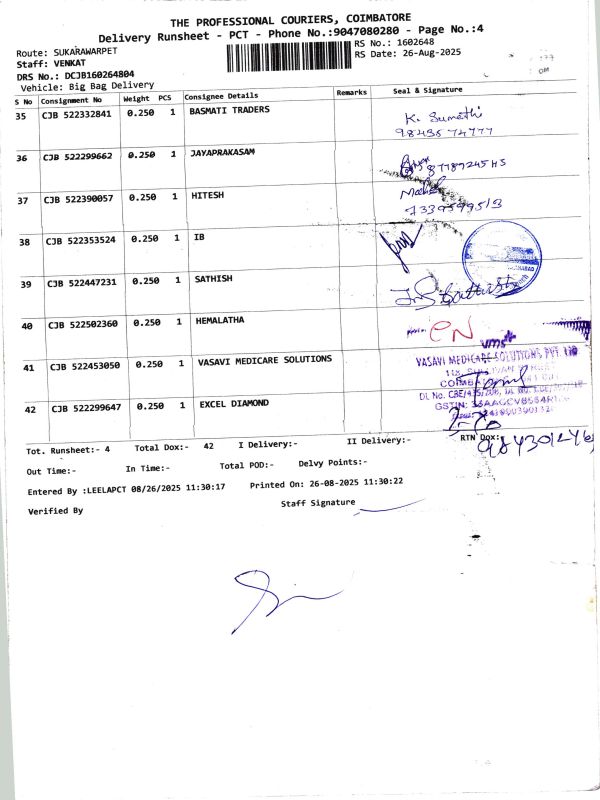 THE PROFESSIONAL COURIERS, COIMBATORE
Delivery Runsheet - PCT - Phone No.:9047080280 - Page No.:4
Route: SUKARAWARPET
RS No.: 1602648
Staff: VENKAT
RS Date: 26-Aug-2025
DRS No.: DCJB160264804
Vehicle: Big Bag Delivery
S No Consignment No Weight PCS Consignee Details Remarks Seal & Signature
35 CJB 522332841 0.250 1 BASMATI TRADERS
K. Sumathi
36 CJB 522299662 0.250 1 JAYAPRAKASAM
37 CJB 522390057 0.250 1 HITESH
38 CJB 522353524 0.250 1 IB
39 CJB 522447231 0.250 1 SATHISH
40 CJB 522502360 0.250 1 HEMALATHA
41 CJB 522453050 0.250 1 VASAVI MEDICARE SOLUTIONS
VASAVI MEDICARE SOLUTIONS PVT. LTD
42 CJB 522299647 0.250 1 EXCEL DIAMOND
Tot. Runsheet:- 4 Total Dox:- 42 I Delivery:- II Delivery:- RTN Dox:-
Out Time:- In Time:- Total POD:- Delvy Points:-
Entered By :LEELAPCT 08/26/2025 11:30:17 Printed On: 26-08-2025 11:30:22
Verified By Staff Signature